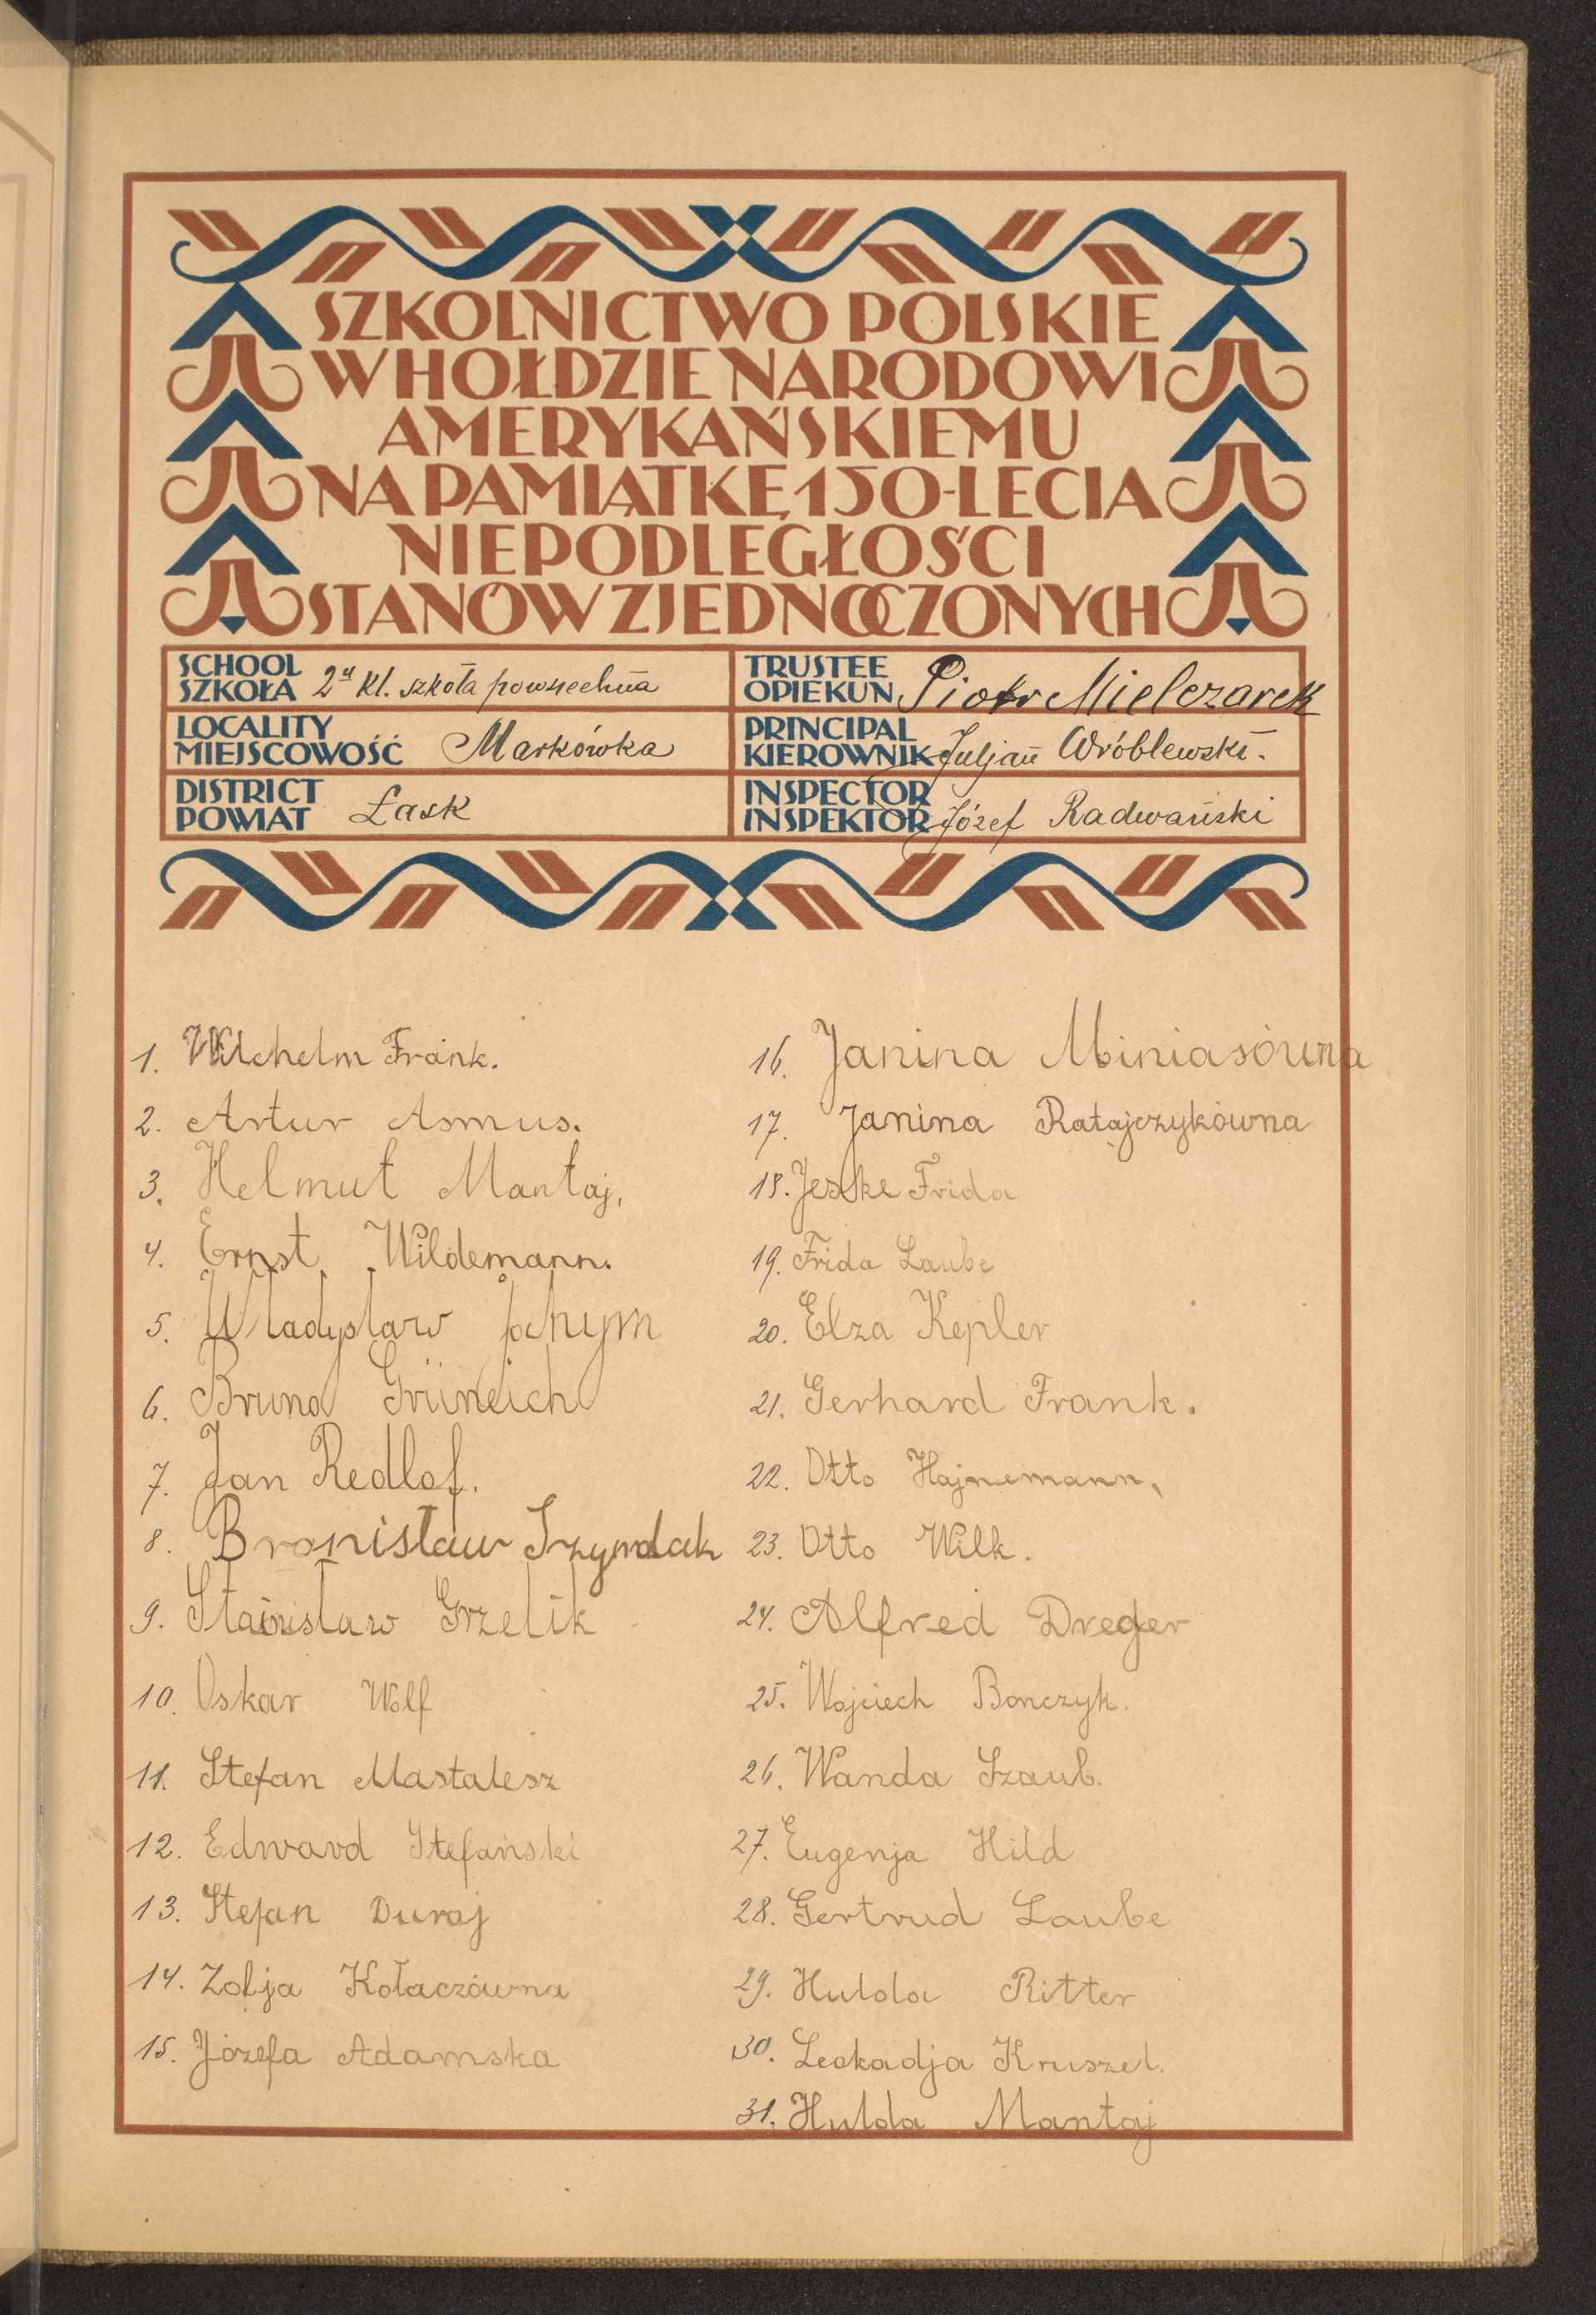 SZKOLNICTWO POLSKIE
W HOŁDZIE NARODOWI
AMERYKAŃSKIEMU
NA PAMIĄTKĘ 150-LECIA
NIEPODLEGŁOŚCI
STANÓW ZJEDNOCZONYCH
SCHOOL
SZKOŁA 2 kl. szkoła powszechna
TRUSTEE
OPIEKUN Piotr Mielczarek
LOCALITY
MIEJSCOWOŚĆ Markówka
PRINCIPAL
KIEROWNIK Juljan Wróblewski.
DISTRICT
POWIAT Łask
INSPECTOR
INSPEKTOR Józef Radwański
1. Wilchelm Frank.
2. Artur Asmus.
3. Helmut Mantaj,
4. Ernst Wildemann.
5. Władysław
6. Bruno
7. Jan Redlof.
8. Bronisław Szymdak
9. Stanisław Grzelik
10. Oskar Wolf
11. Stefan Mastalesz
12. Edward Stefański
13. Stefan Duraj
14. Zofja Kołaczówna
15. Józefa Adamska
16. Janina Miniasówna
17. Janina Ratajczykówna
18. Jeske Frida
19. Frida Laube
20. Elza Kepler
21. Gerhard Frank.
22. Otto Hajnemann,
23. Otto Wilk.
24. Alfred Dreger
25. Wojciech Bonczyk.
26. Wanda Szaub.
27. Eugenja Hild
28. Gertrud Laube
29. Hulda Ritter
30. Leokadja Kruszel.
31. Hulda Mantaj